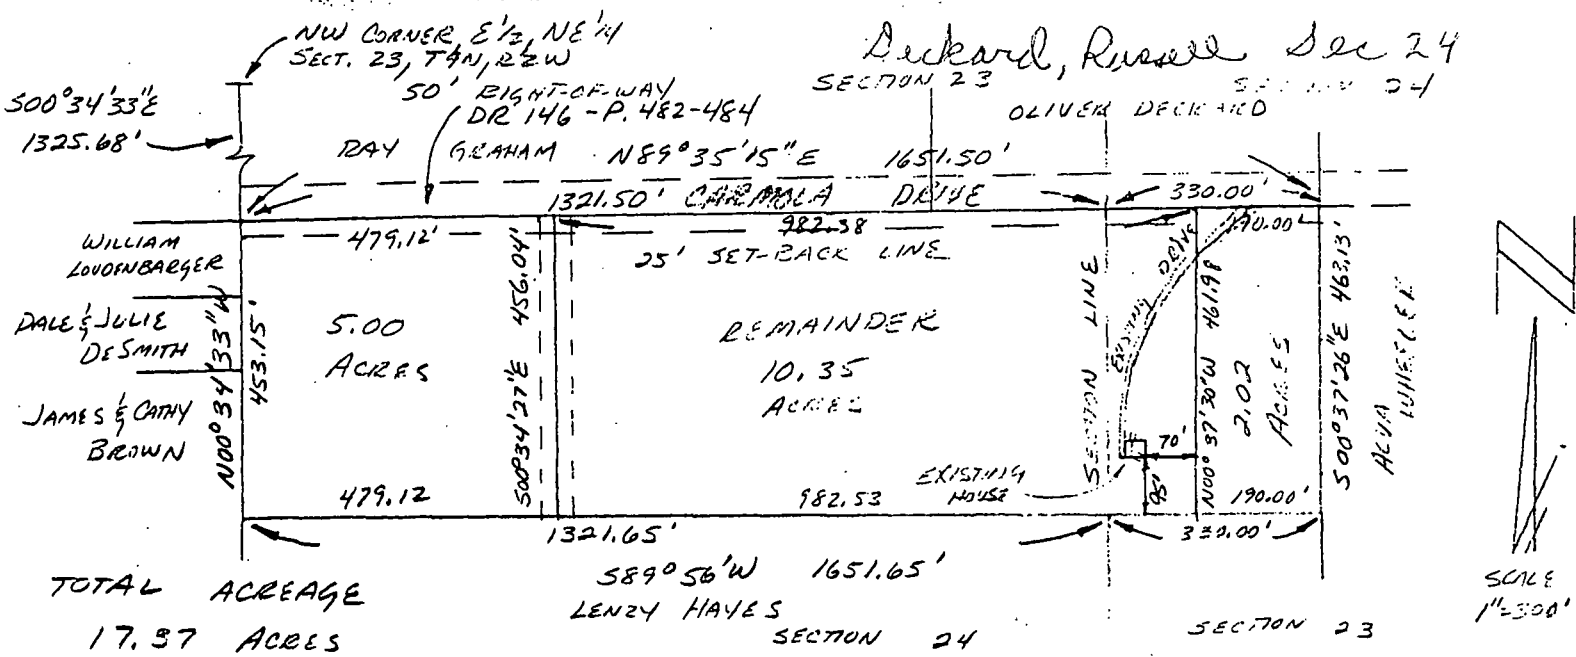 NW CORNER, E'1/2, NE'1/4
SECT. 23, T9N, R2W
Deckard, Russell Sec 24
SECTION 23
SECTION 24
S00°34'33"E
1325.68'
50' RIGHT-OF-WAY
DR 146 - P. 482-484
OLIVER DECKARD
RAY GRAHAM N89°35'15"E 1651.50'
1321.50' CARMOLA DRIVE
330.00'
479.12'
982.38
190.00'
25' SET-BACK LINE
WILLIAM
LOUDENBARGER
DALE & JULIE
DESMITH
JAMES & CATHY
BROWN
N00°34'33"W
453.15'
5.00
ACRES
S00°34'27"E 456.04'
REMAINDER
10.35
ACRES
SECTION LINE
EXISTING DRIVE
N00°37'30"W 461.98
2.02
ACRES
S00°37'26"E 463.13'
ALVA
WHEELER
70'
95'
EXISTING
HOUSE
479.12
982.53
190.00'
1321.65'
330.00'
S89°56'W 1651.65'
LENZY HAYES
SECTION 24
SECTION 23
TOTAL ACREAGE
17.37 ACRES
N
SCALE
1"=300'